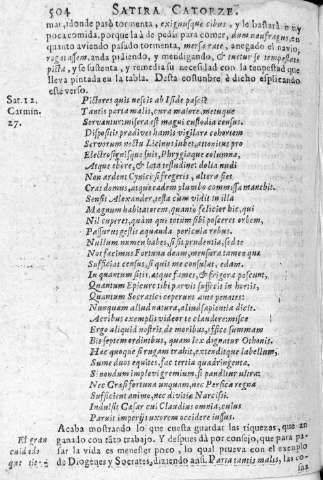 504 SATIRA CATORZE.
mar, adonde pasò tormenta, exiguusque cibus, y le bastarà o y
poca comida. porque la à de pedir para comer, dum naufragus, en
quanto aviendo pasado tormenta, mersa rate, anegado el navio,
rogat assem, anda pidiendo, y mendigando, & tuetur se tempestate
picta, y se sustenta, y remedia su necesidad con la tempestad que
lleva pintada en la tabla. Desta costunbre è dicho esplicando
este verso.
Sat. 12. Pictores quis nescit ab Iside pasci?
Carmin. Tantis parta malis, cura maiore, metuque
27. Servantur: misera est magni custodia census.
Dispositis praedives hamis vigilare cohortem
Servorum noctu Licinus iubet, attonitus pro
Electro, signisque suis, Phrygiaque columna,
Atque ebore, & lata testudine: dolia nudi
Non ardent Cynici: si fregeris, altera fiet
Cras domus, atque eadem plumbo commissa manebit.
Sensit Alexander, testa cum vidit in illa
Magnum habitatorem, quanto felicior hic, qui
Nil cuperet, quàm qui totum sibi posceret orbem,
Passurus gestis aequanda pericula rebus.
Nullum numen habes, si sit prudentia, sed te
Nos facimus Fortuna deam, mensura tamen quae
Sufficiat census, si quis me consulat, edam.
In quantum sitis, atque fames, & frigora poscunt,
Quantum Epicure tibi parvis suffecit in hortis,
Quantum Socratici ceperunt ante penates:
Nunquam aliud natura, aliud sapientia dicit.
Acribus exemplis videor te claudere: misce
Ergo aliquid nostris de moribus, effice summam
Bis septem ordinibus, quam lex dignatur Othonis.
Hec quoque si rugam trahit, extenditque labellum,
Sume duos equites, fac tertia quadringenta.
Si nondum implevi gremium, si panditur ultra:
Nec Croesi fortuna unquam, nec Persica regna
Sufficient animo, nec divitiae Narcissi.
Indulsit Caesar cui Claudius omnia, cuius
Paruit imperijs uxorem occidere iussus.
Acaba mostrando lo que cuesta guardar las riquezas, que an
El gran ganado con tãto trabajo. Y despues dà por consejo, que para pa-
cuidado sar la vida es menester poco, lo qual prueva con el exemplo
que tiene de Diogenes y Socrates, diziendo ansi. Parta tantis malis, las co-
sas